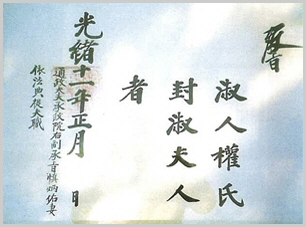 淑人權氏
封淑夫人
者
光緖十一年正月 日
通政大夫承政院右副承旨慎炳佑妻
依法典從夫職